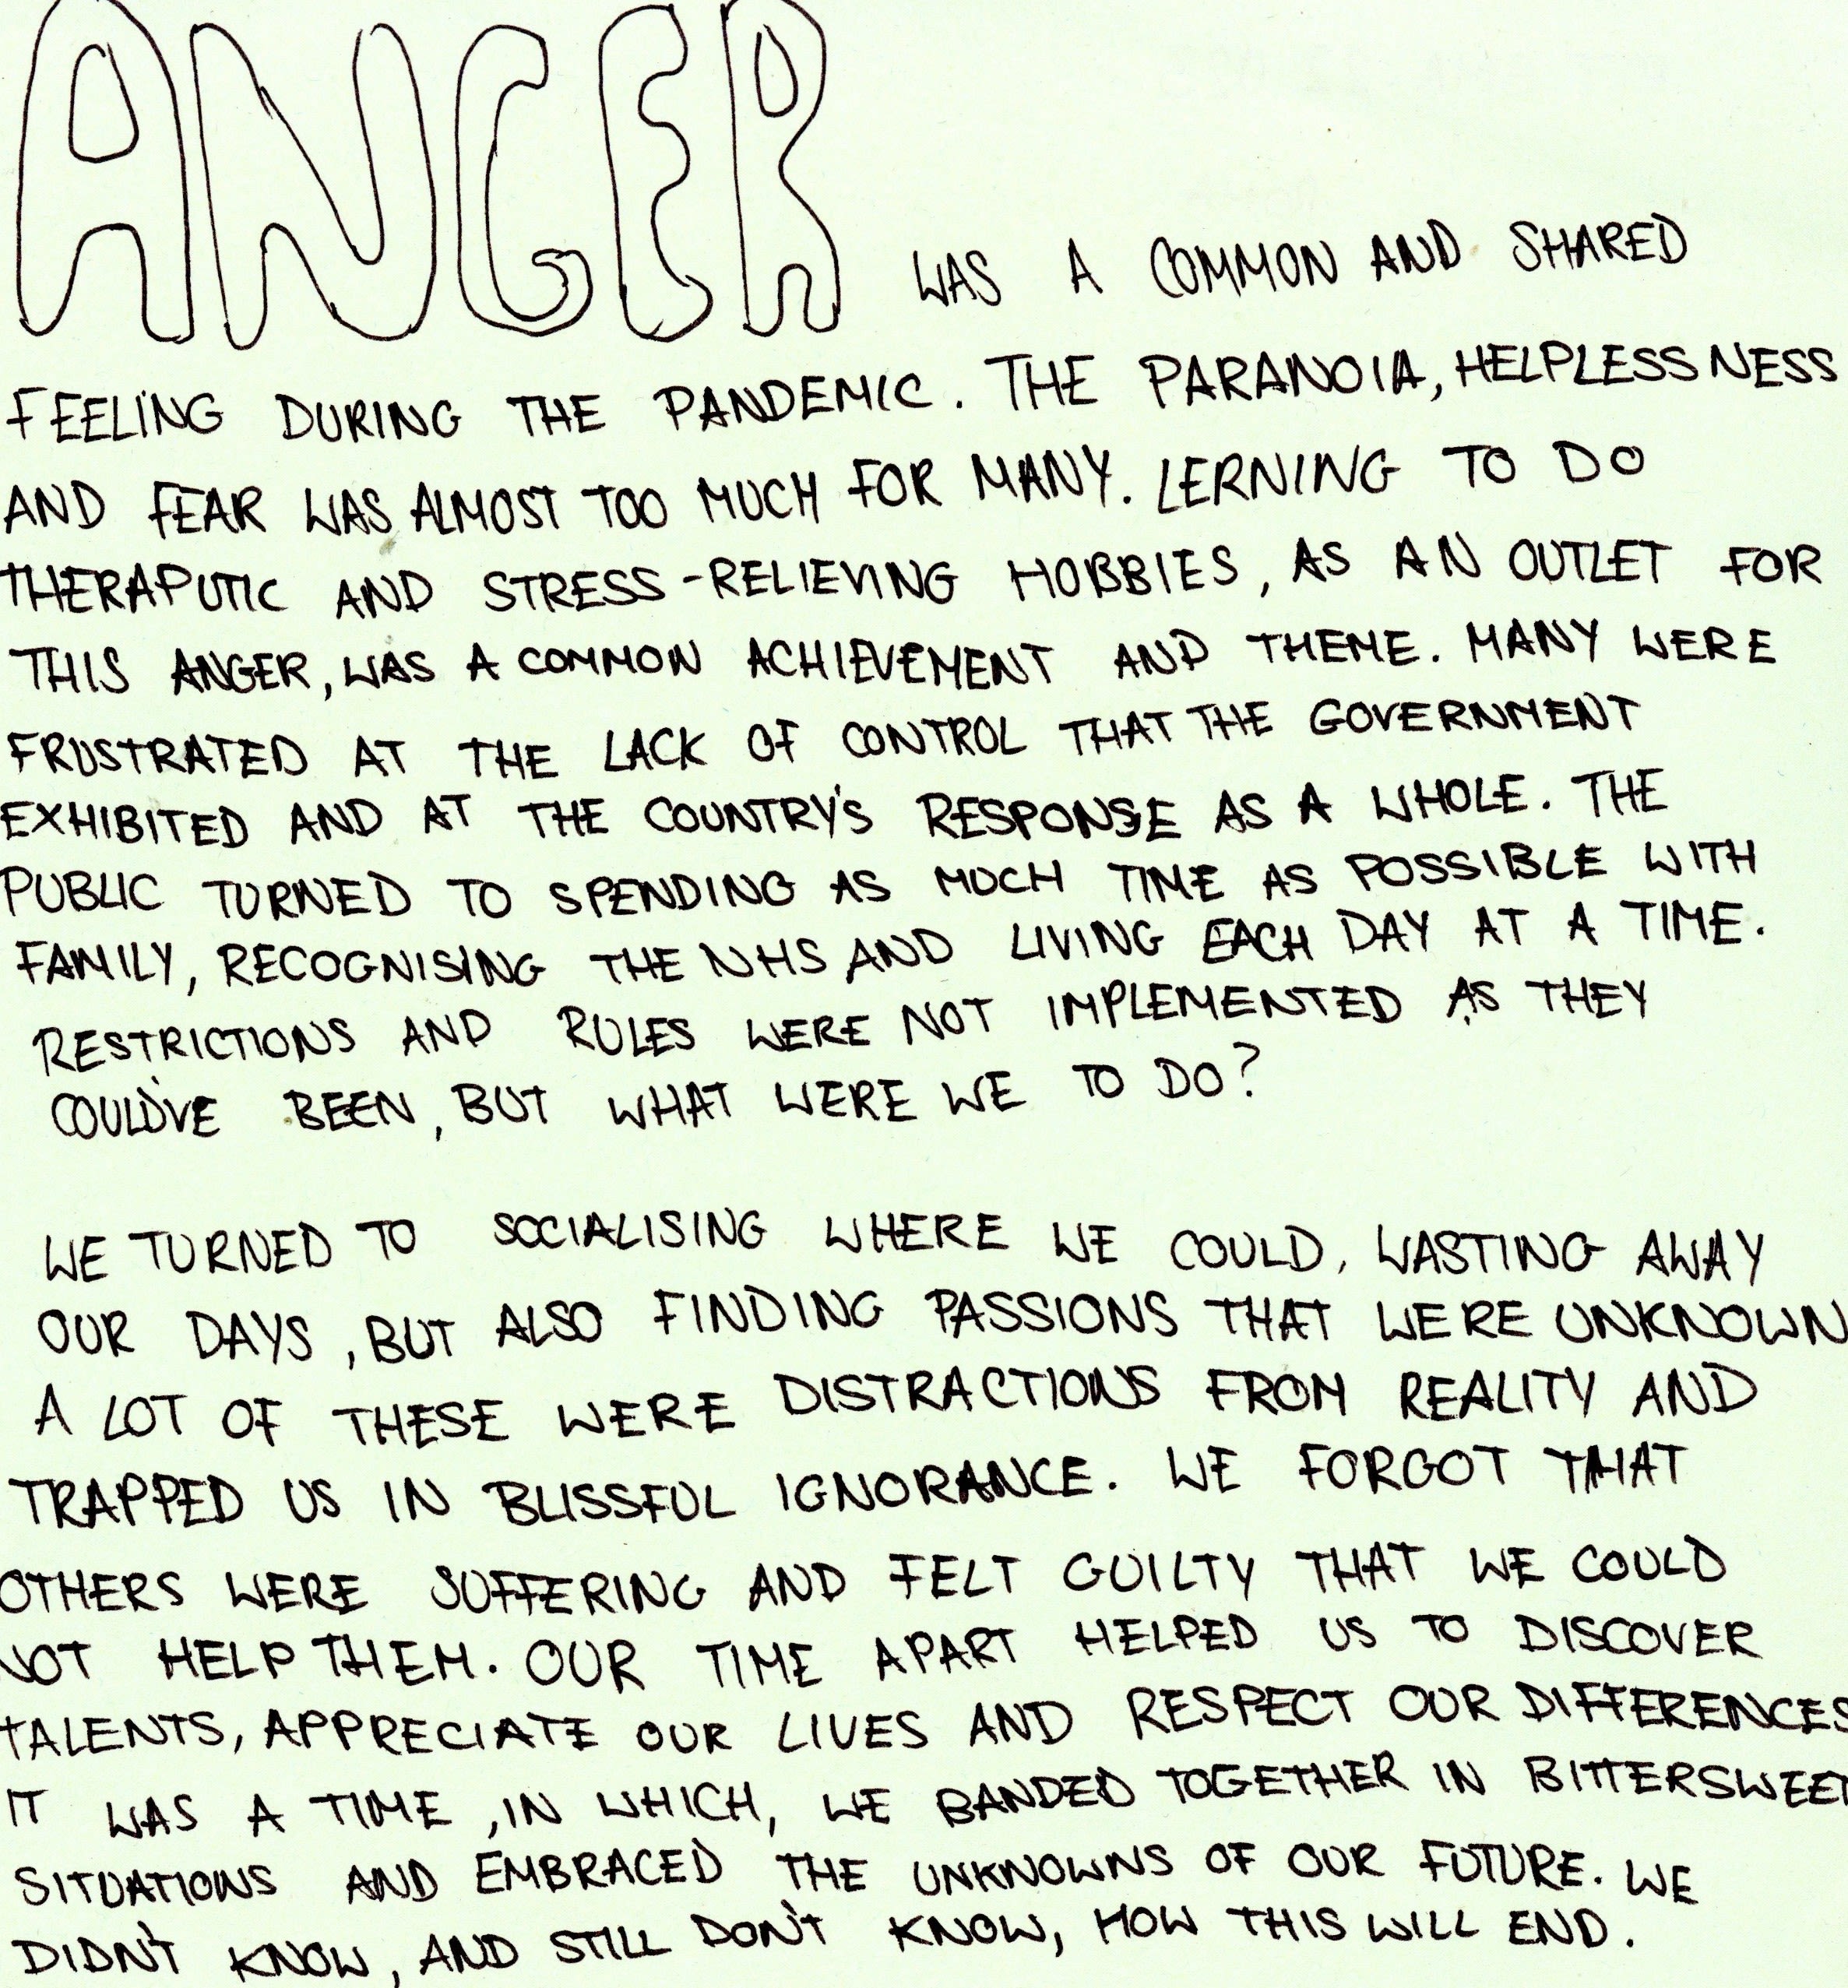 ANGER WAS A COMMON AND SHARED
FEELING DURING THE PANDEMIC. THE PARANOIA, HELPLESSNESS
AND FEAR WAS ALMOST TOO MUCH FOR MANY. LERNING TO DO
THERAPUTIC AND STRESS-RELIEVING HOBBIES, AS AN OUTLET FOR
THIS ANGER, WAS A COMMON ACHIEVEMENT AND THEME. MANY WERE
FRUSTRATED AT THE LACK OF CONTROL THAT THE GOVERNMENT
EXHIBITED AND AT THE COUNTRY'S RESPONSE AS A WHOLE. THE
PUBLIC TURNED TO SPENDING AS MUCH TIME AS POSSIBLE WITH
FAMILY, RECOGNISING THE NHS AND LIVING EACH DAY AT A TIME.
RESTRICTIONS AND RULES WERE NOT IMPLEMENTED AS THEY
COULD'VE BEEN, BUT WHAT WERE WE TO DO?
WE TURNED TO SOCIALISING WHERE WE COULD, WASTING AWAY
OUR DAYS, BUT ALSO FINDING PASSIONS THAT WERE UNKNOWN
A LOT OF THESE WERE DISTRACTIONS FROM REALITY AND
TRAPPED US IN BLISSFUL IGNORANCE. WE FORGOT THAT
OTHERS WERE SUFFERING AND FELT GUILTY THAT WE COULD
NOT HELP THEM. OUR TIME APART HELPED US TO DISCOVER
TALENTS, APPRECIATE OUR LIVES AND RESPECT OUR DIFFERENCES
IT WAS A TIME, IN WHICH, WE BANDED TOGETHER IN BITTERSWEET
SITUATIONS AND EMBRACED THE UNKNOWNS OF OUR FUTURE. WE
DIDN'T KNOW, AND STILL DON'T KNOW, HOW THIS WILL END.